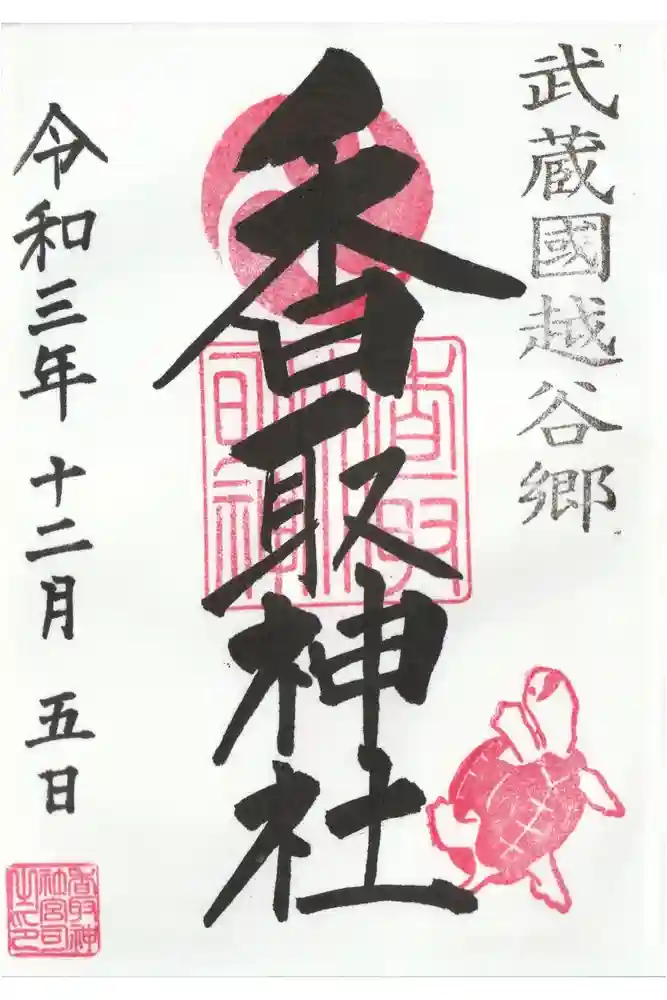 武蔵國越谷郷
香取神社
令和三年十二月五日